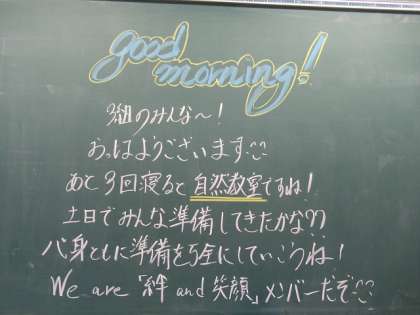 good
morning!
3組のみんな〜!
おっはようございます
あと3回寝ると自然教室ですね!
土日でみんな準備してきたかな??
心身ともに準備を万全にしていこうね!
We are 「絆 and 笑顔」メンバーだぞ